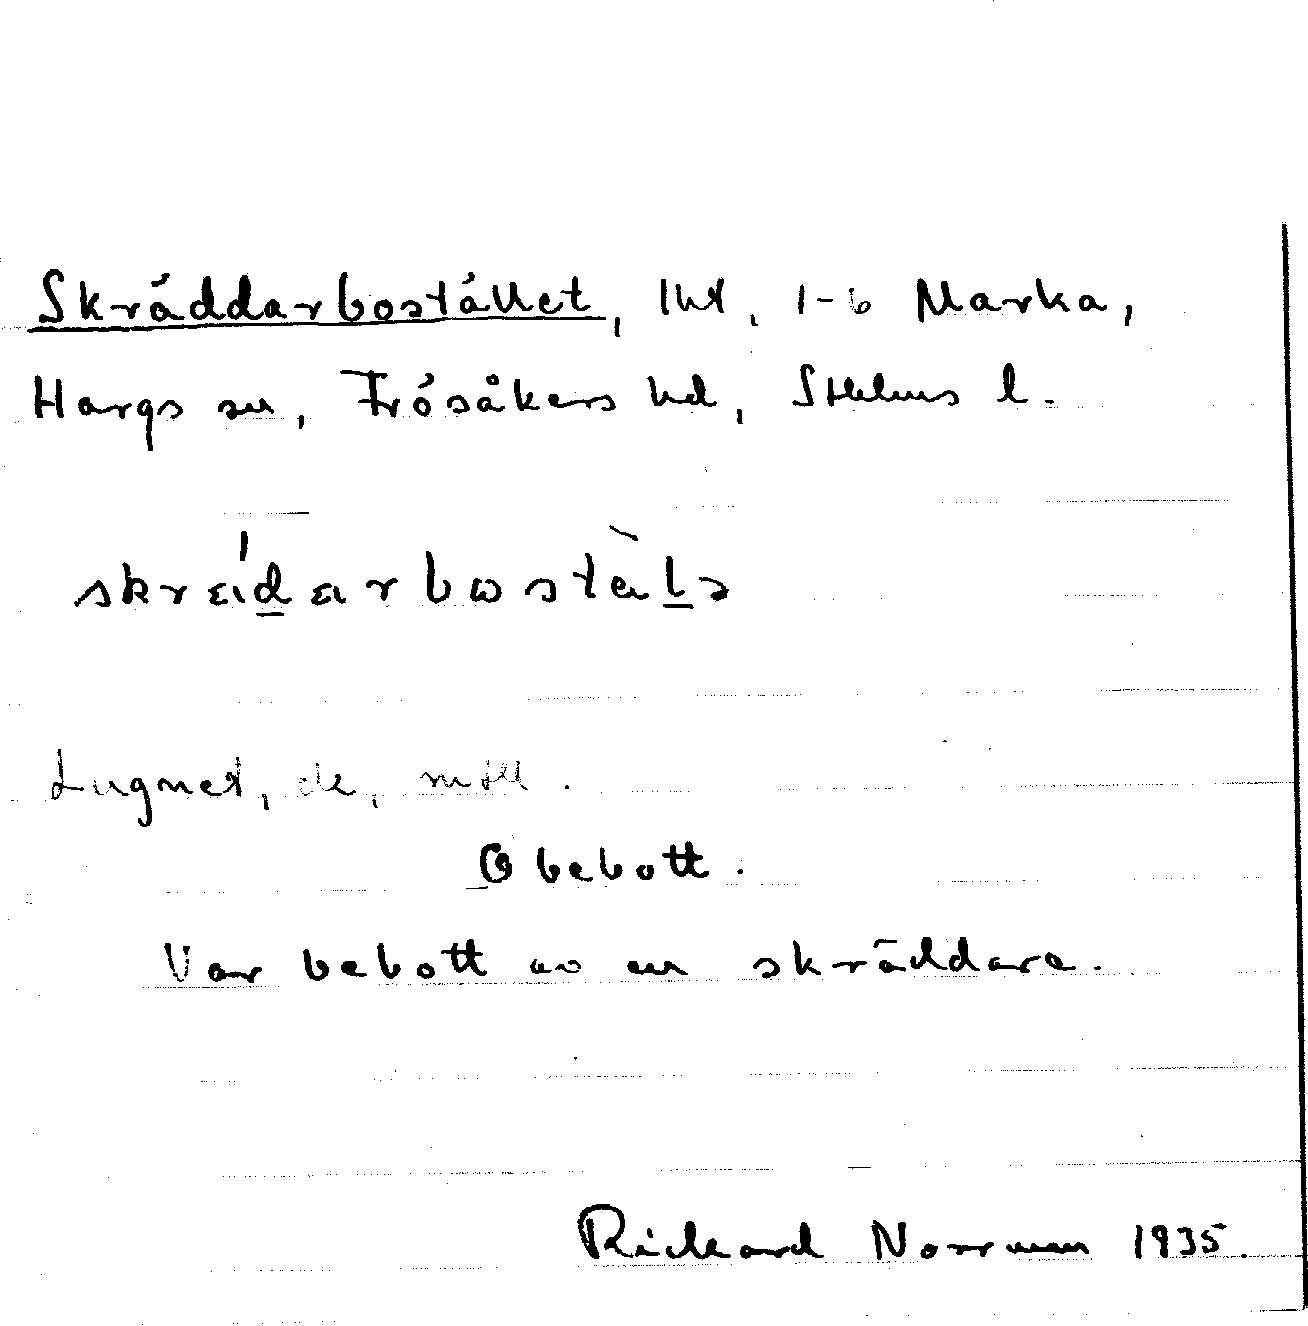 Skräddarbostället, lht, 1-6 Marka,
Hargs sn, Frösåkers hd, Sthlms l.
Lugnet, de, mtll.
Obebott.
Var bebott av en skräddare.
Rickard Norrman 1935.